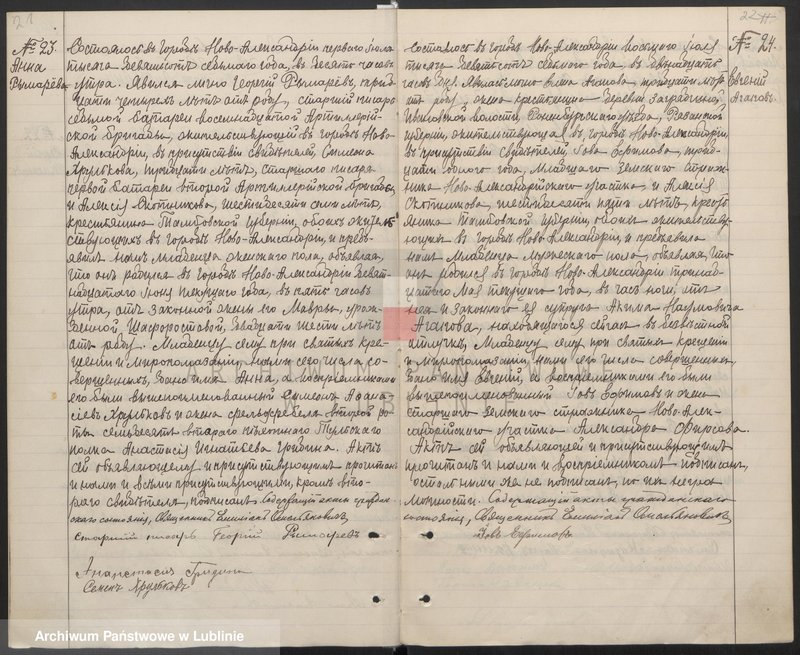 21
№ 23.
Анна
Рымарёва
Состоялось въ городѣ Ново-Александріи перваго Іюля
тысяча девятьсотъ седьмого года, въ десять часовъ
утра. Явился лично Георгій Рымарёвъ, трид-
цати четырехъ лѣтъ отъ роду, старшій писарь
седьмой батареи восемнадцатой Артиллерій-
ской бригады, жительствующій въ городѣ Ново-
Александріи, въ присутствіи свидѣтелей, Симеона
Хрулькова, тридцати лѣтъ, старшаго писаря
первой батареи второй Артиллерійской бригады,
и Алексія Охотникова, шестидесяти пяти лѣтъ,
крестьянина Тамбовской губерніи, обоихъ житель-
ствующихъ въ городѣ Ново-Александріи, и предъ-
явилъ намъ младенца женскаго пола, объявляя,
что онъ родился въ городѣ Ново-Александріи девят-
надцатаго Іюня текущаго года, въ пять часовъ
утра, отъ законной жены его Мавры, урож-
денной Шафоростовой, двадцати шести лѣтъ
отъ роду. Младенцу сему при святомъ кре-
щеніи и миропомазаніи, нами сего числа со-
вершенныхъ, дано имя Анна, а воспріемниками
его были вышепоименованный Симеонъ Афана-
сіевъ Хрульковъ и жена фельдфебеля второй ро-
ты семьдесятъ втораго пѣхотнаго Тульскаго
полка Анастасія Игнатьева Гридина. Актъ
сей объявляющему и присутствующимъ прочитанъ
и нами и всѣми присутствующими, кромѣ вто-
раго свидѣтеля, подписанъ. Содержащій акты граждан-
скаго состоянія, Священникъ
старшій писарь Георгій Рымаревъ
Анастасія Гридина
Семенъ Хрульковъ
22
№ 24.
Евгеній
Агаповъ.
Состоялось въ городѣ Ново-Александріи восьмого Іюля
тысяча девятьсотъ седьмого года, въ двѣнадцать
часовъ дня. Явилась лично Агапова, тридцати
отъ роду, жена крестьянина деревни
волости, уѣзда, Рязанской
губерніи, жительствующая въ городѣ Ново-Александріи,
въ присутствіи свидѣтелей, Іова Ефимова, трид-
цати одного года, младшаго земскаго страж-
ника Ново-Александрійскаго участка, и Алексія
Охотникова, шестидесяти пяти лѣтъ, кресть-
янина Тамбовской губерніи, обоихъ жительству-
ющихъ въ городѣ Ново-Александріи, и предъявила
намъ младенца мужескаго пола, объявляя, что
онъ родился въ городѣ Ново-Александріи тринад-
цатаго Мая текущаго года, въ часъ ночи, отъ
нея и законнаго ея супруга Акима Наумовича
Агапова, находящагося сейчасъ въ безвѣстной
отлучкѣ. Младенцу сему при святомъ крещеніи
и миропомазаніи, нами сего числа совершенныхъ,
дано имя Евгеній, а воспріемниками его были
вышепоименованный Іовъ Ефимовъ и жена
старшаго земскаго стражника Ново-Алек-
сандрійскаго участка Александра Фирсова.
Актъ сей объявляющей и присутствующимъ
прочитанъ и нами и воспріемникомъ подписанъ,
остальными же не подписанъ, по ихъ негра-
мотности. Содержащій акты гражданскаго
состоянія, Священникъ
Іовъ Ефимовъ
ARCHIWUM PAŃSTWOWE
W LUBLINIE
Archiwum Państwowe w Lublinie